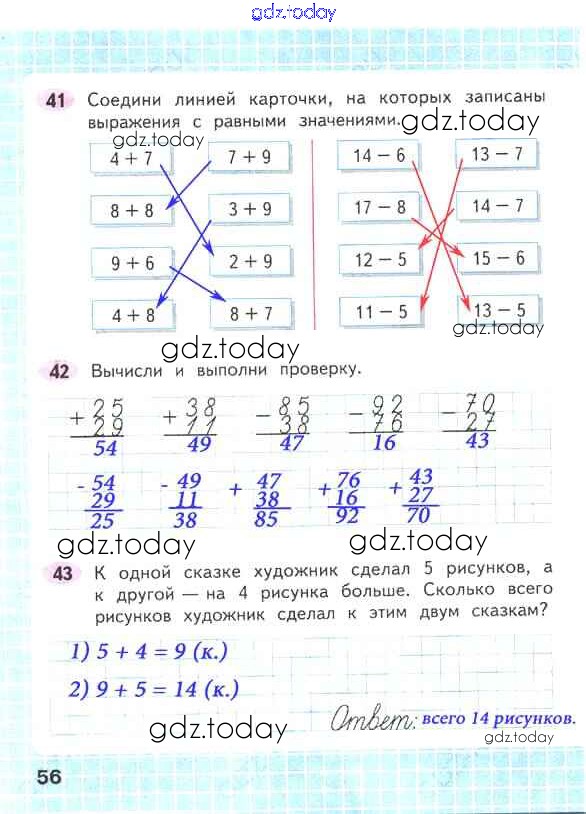 gdz.today
41 Соедини линией карточки, на которых записаны
выражения с равными значениями.
gdz.today
gdz.today
4 + 7 7 + 9 14 − 6 13 − 7
8 + 8 3 + 9 17 − 8 14 − 7
9 + 6 2 + 9 12 − 5 15 − 6
4 + 8 8 + 7 11 − 5 13 − 5
gdz.today
gdz.today
42 Вычисли и выполни проверку.
+ 25 + 38 − 85 − 92 − 70
29 11 38 76 27
54 49 47 16 43
- 54 - 49 + 47 + 76 + 43
29 11 38 16 27
25 38 85 92 70
gdz.today
gdz.today
43 К одной сказке художник сделал 5 рисунков, а
к другой — на 4 рисунка больше. Сколько всего
рисунков художник сделал к этим двум сказкам?
1) 5 + 4 = 9 (к.)
2) 9 + 5 = 14 (к.)
Ответ: всего 14 рисунков.
gdz.today
gdz.today
56